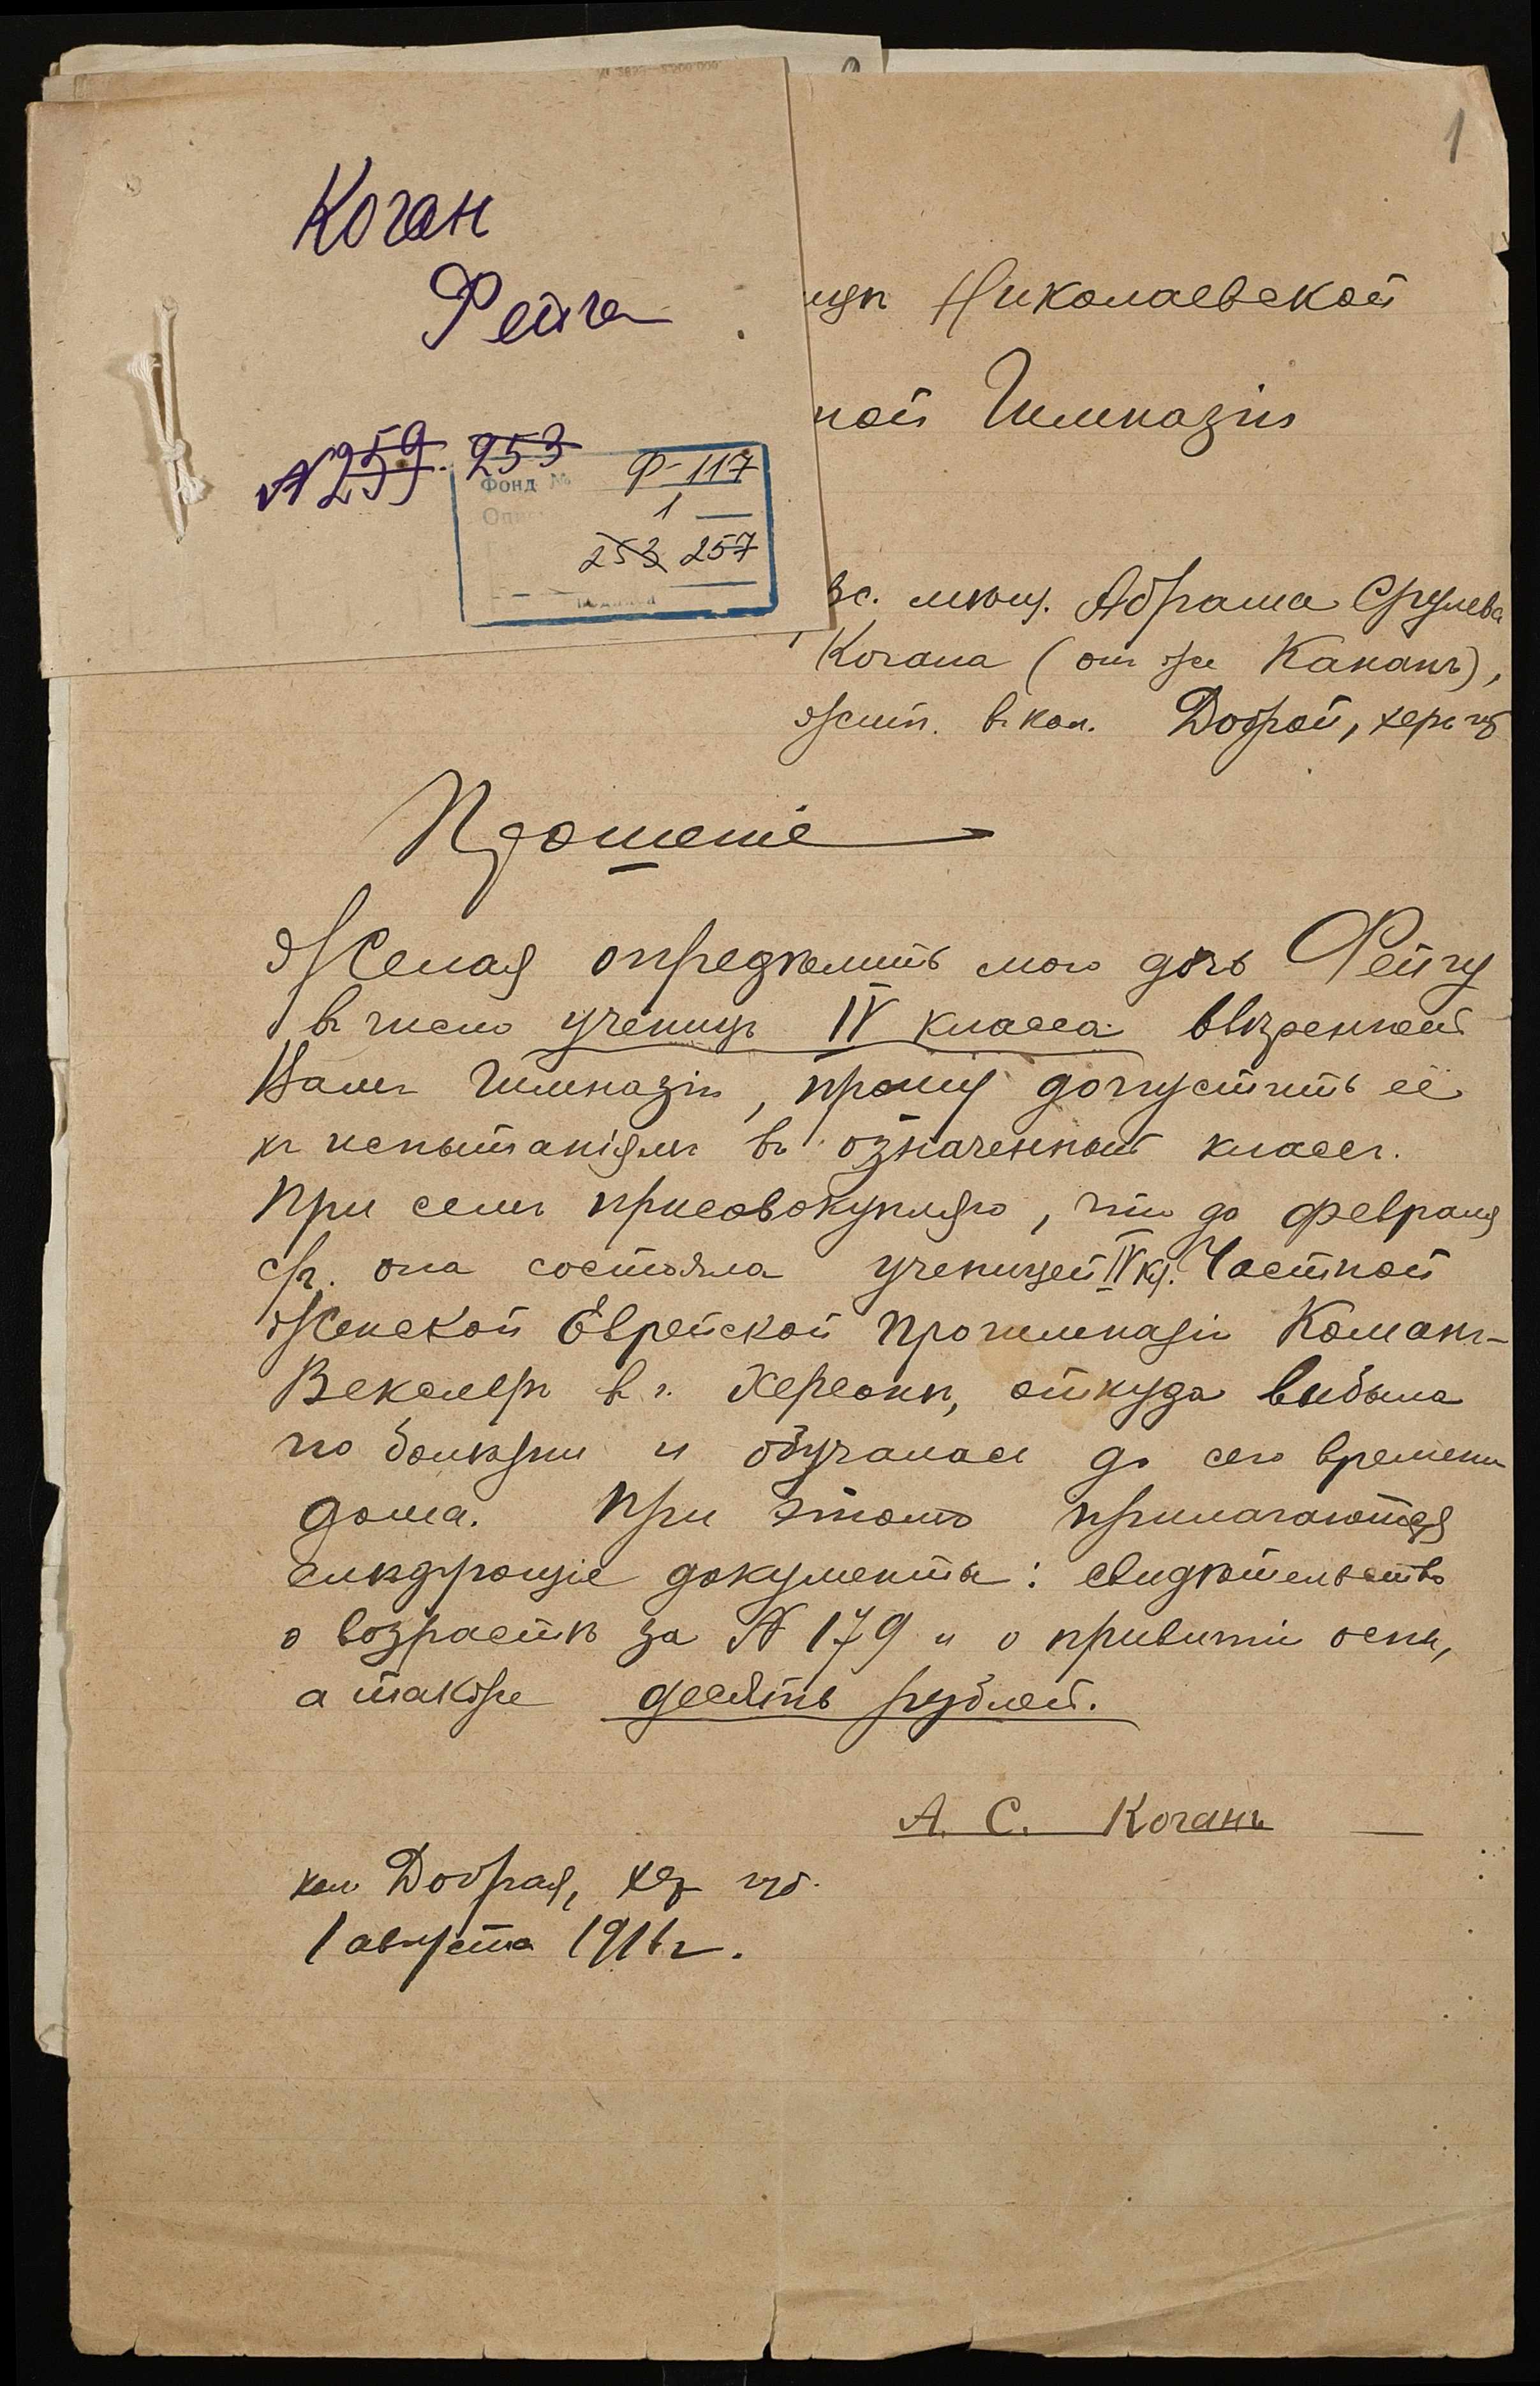 1
Коган
Фейга
№ 259. 253
Фонд № Ф-117
1
253 257
Николаевской
ной Гимназіи
мѣщ. Абрама Срулева
Когана (онъ же Каганъ),
жит. въ кол. Доброй, херс губ
Прошеніе
Желая опредѣлить мою дочь Фейгу
въ число ученицъ IV класса ввѣренной
Вамъ Гимназіи, прошу допустить её
къ испытаніямъ въ означенный классъ.
При семъ присовокупляю, что до февраля
с/г. она состояла ученицей IV кл. Частной
Женской Еврейской Прогимназіи
Векслеръ въ г. Херсонѣ, откуда выбыла
по болѣзни и обучалась до сего времени
дома. При этомъ прилагаются
слѣдующіе документы: свидѣтельство
о возрастѣ за № 179 и о привитіи оспы,
а также десять рублей.
А. С. Коганъ
кол Добрая, хер губ.
1 августа 1916 г.